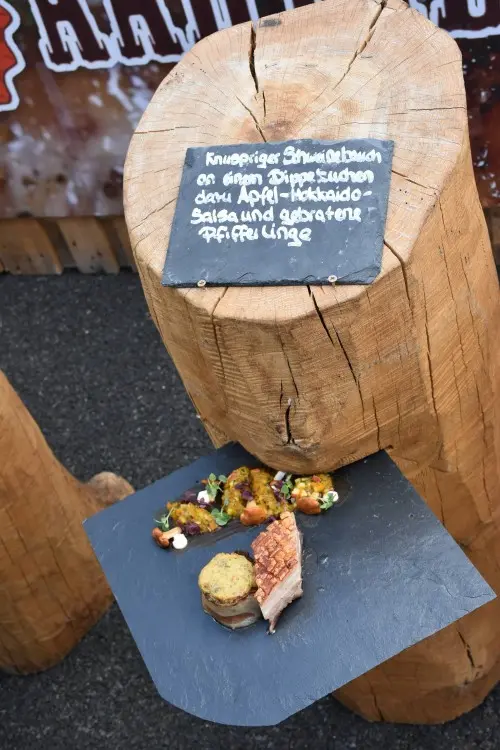 Knuspriger Schweinebauch
on einem Dippekuchen
dazu Apfel-Hokkaido-
Salsa und gebratene
Pfifferlinge